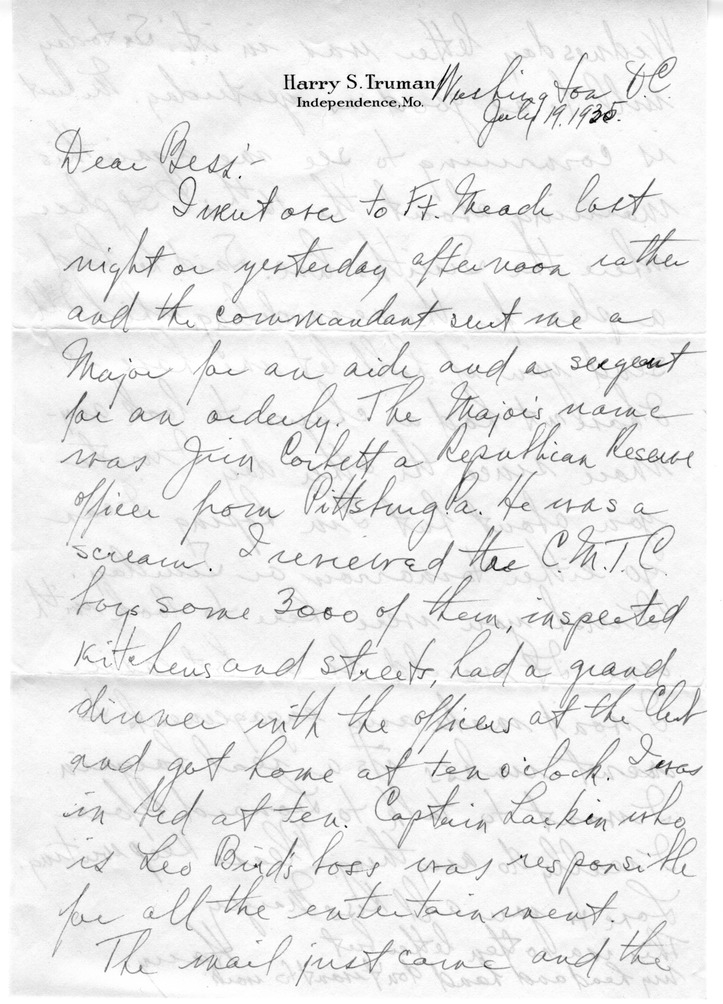 Harry S. Truman
Independence, Mo.
Washington D.C
July 19, 1935.
Dear Bess:-
I went over to Ft. Meade last
night or yesterday afternoon rather
and the commandant sent me a
Major for an aide and a sergeant
for an orderly. The Major's name
was Jim Corbett a Republican Reserve
officer from Pittsburg Pa. He was a
scream. I reviewed the C.M.T.C.
boys some 3000 of them, inspected
kitchens and streets, had a grand
dinner with the officers at the Club
and got home at ten o'clock. I was
in bed at ten. Captain Larkin who
is Leo Bird's boss was responsible
for all the entertainment.
The mail just came and the